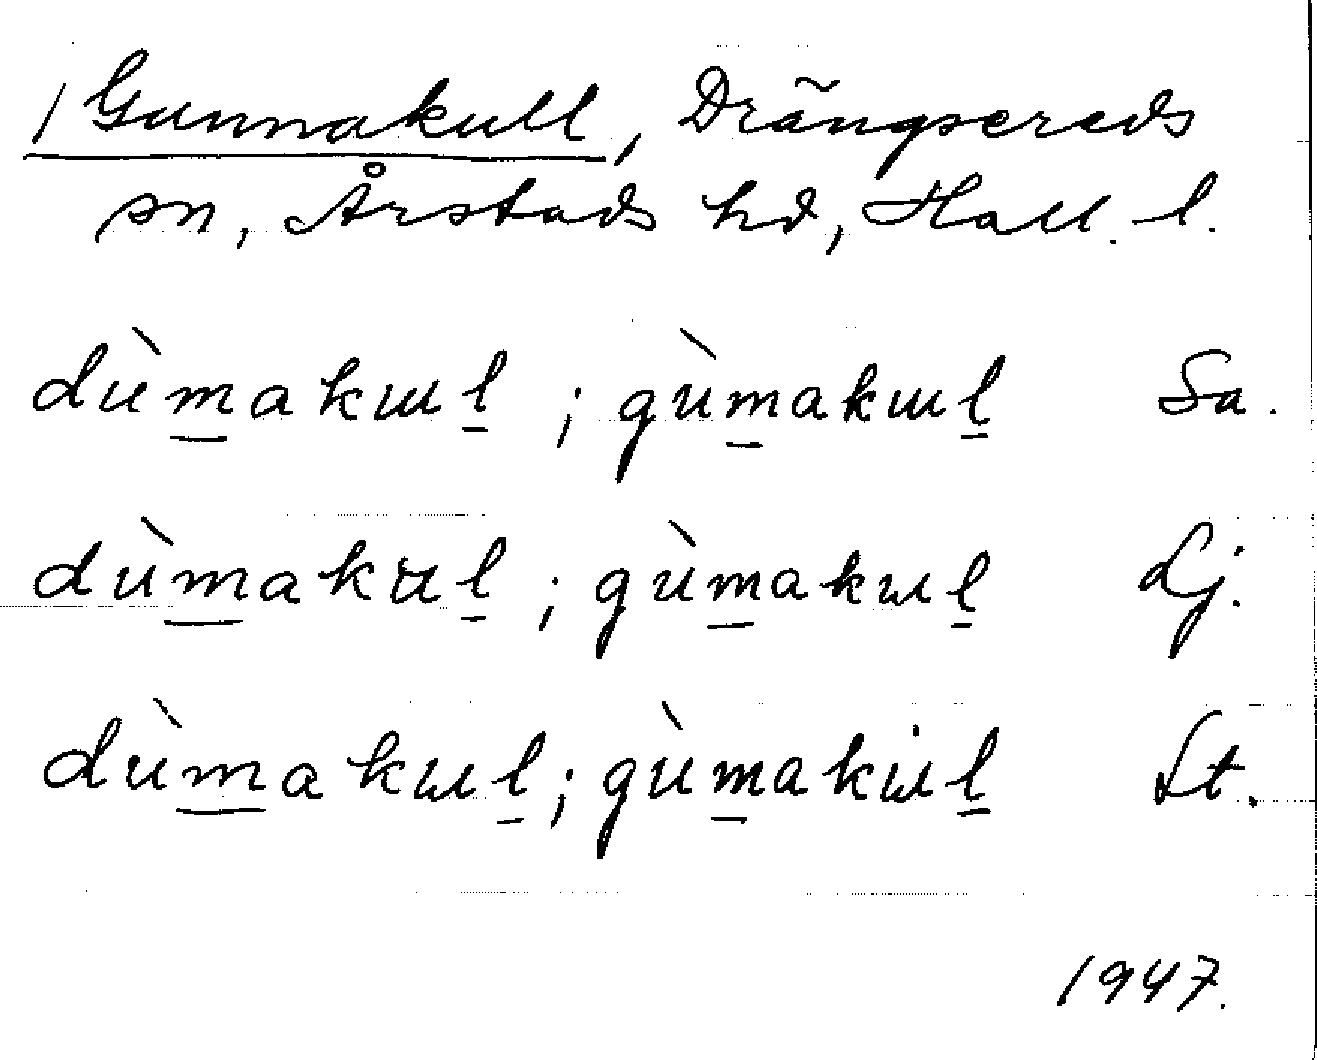 / Gunnakull, Drängsereds
sn, Årstads hd, Hall. l.
dùm̲akɯl̲ ; gùm̲akɯl̲ Sa.
dùm̲akul̲ ; gùm̲akɯl̲ Lj.
dùm̲akɯl̲ ; gùm̲akɯl̲ St.
1947.